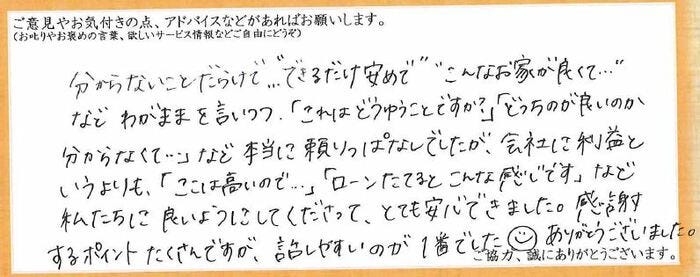 ご意見やお気付きの点、アドバイスなどがあればお願いします。
(お叱りやお褒めの言葉、欲しいサービス情報などご自由にどうぞ)
分からないことだらけで…"できるだけ安めで""こんなお家が良くて…"
など わがままを言いつつ、「これはどうゆうことですか?」「どっちのが良いのか
分からなくて…」など本当に頼りっぱなしでしたが、会社に利益と
いうよりも、「ここは高いので…」「ローンたてると こんな感じです」など
私たちに良いようにしてくださって、とても安心できました。感謝
するポイントたくさんですが、話しやすいのが1番でした☺ ありがとうございました。
ご協力、誠にありがとうございます。